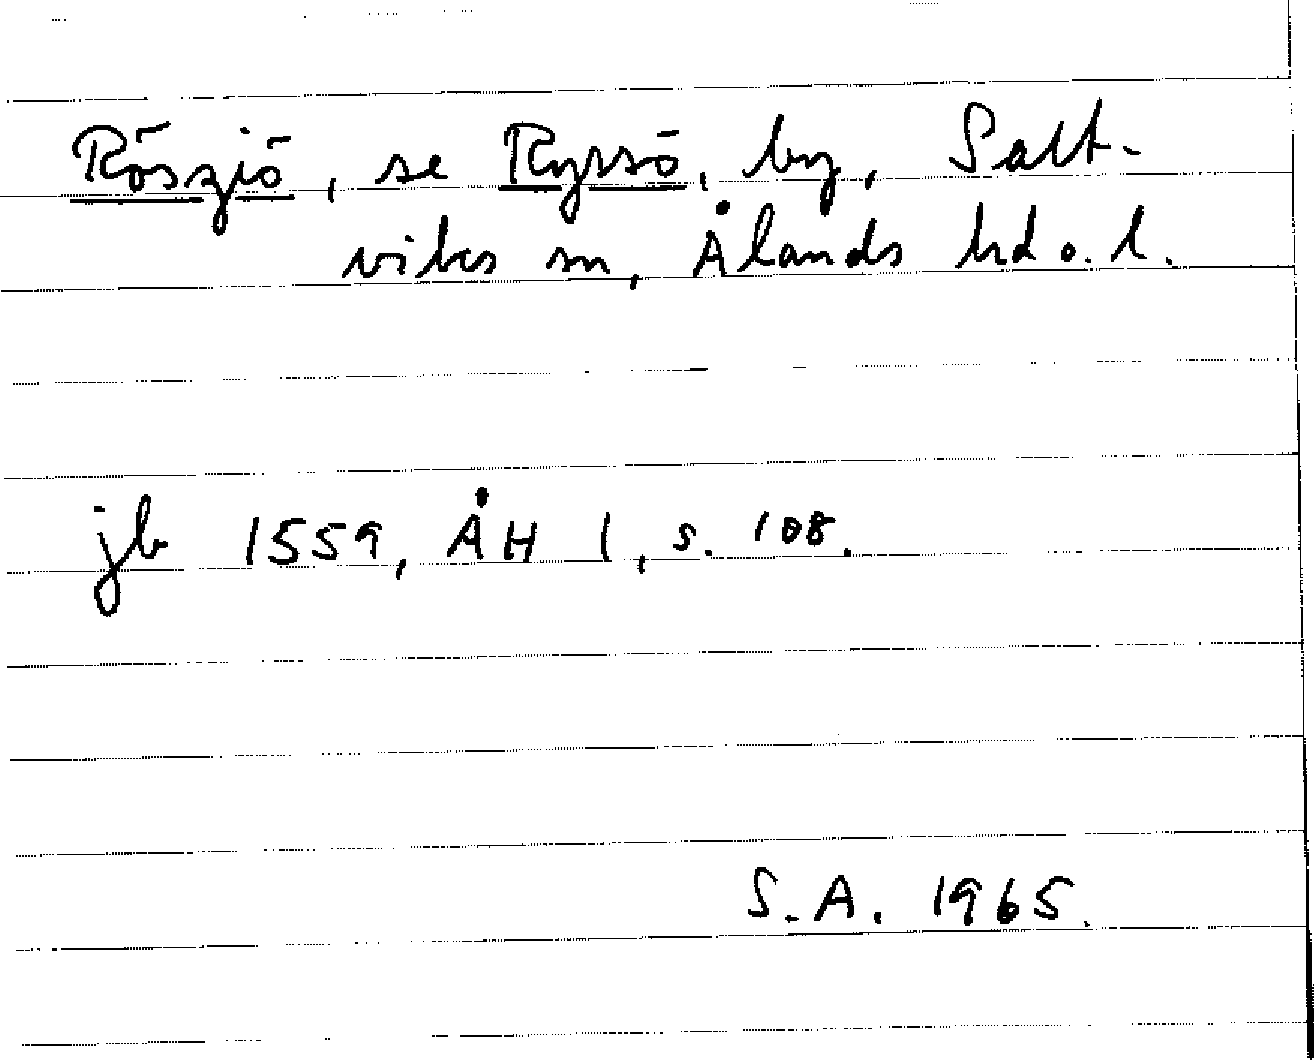 Röszjö, se Ryssö, by, Salt-
viks sn, Ålands hd o. l.
jb 1559, ÅH 1, s. 108.
S.A. 1965.